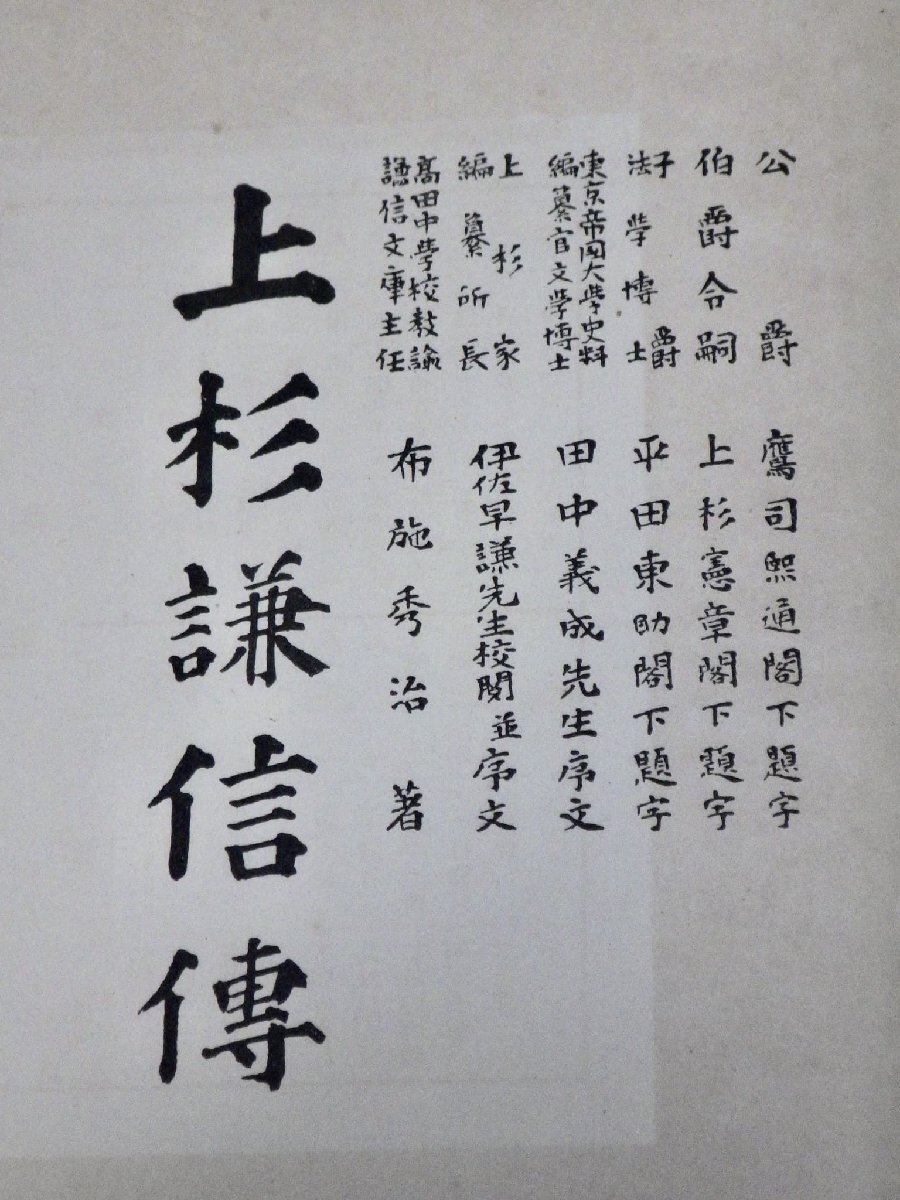 公爵 鷹司熙通閣下題字
伯爵令嗣 上杉憲章閣下題字
子爵
法学博士 平田東助閣下題字
東京帝国大学史料
編纂官文学博士 田中義成先生序文
上杉家
編纂所長 伊佐早謙先生校閲並序文
高田中学校教諭
謙信文庫主任 布施秀治著
上杉謙信傳